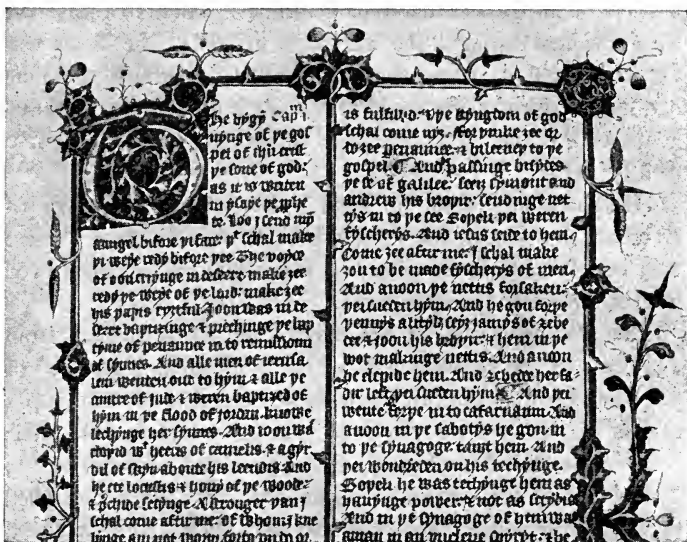 he bygȳ Capᵐ i
nynge of þe gos
pel of ihũ crist
þe sone of god:
as it is writen
in ysaye þe pphe
te. Loo I send myn
aungel bifore þi face: þᵗ schal make
þi weye redy bifore þee The voyce
of oon cryinge in deserte make zee
redy þe weye of þe lord: make zee
his paþis ryztful Joon was in de
serte baptisinge ⁊ prechinge þe bap
tyme of penaunce in to remissioun
of synnes. And alle men of ierusa
lem wenten out to hym ⁊ alle þe
cuntre of jude ⁊ weren baptized of
hym in þe flood of jordan. knowe
lechynge her synnes. And ioon was
cloþid wᵗ heeris of camelis ⁊ a gyr
dil of skyn aboute his leendis And
he eet locustis ⁊ hony of þe wode:
⁊ p̃chide seiynge. A stronger þan I
schal come aftir me: of whom I kne
linge am not worþi forto vn do or
is fulfillid. ⁊ þe kyngdom of god
schal come nyz. forþinke zee or
do zee penaunce. ⁊ bileeueþ to þe
gospel. And passinge bisydes
þe se of galilee: seez symont and
andrew his broþir. sendinge net
tys in to þe see Soþeli þei weren
fyscherys. And iesus seide to hem
Come zee aftur me: I schal make
zou to be made fyscherys of men.
And anoon þe nettis forsaken:
þei sueden hym. And he gon forþe
þennys a lityl: seez iamys of zebe
dee ⁊ joon his broþir: ⁊ hem in þe
boot makinge nettis. And anoon
he clepide hem. And zebedee her fa
dir left. þei sueden hym And þei
wente forþe in to cafarnaum And
anoon in þe sabotys he gon in
to þe synagoge tauzt hem. And
þei wondreden on his techynge.
Soþeli he was techynge hem as
hauynge power: ⁊ not as scribis
And in þe synagoge of hem was
a man in an vnclene spiryt: ⁊ he